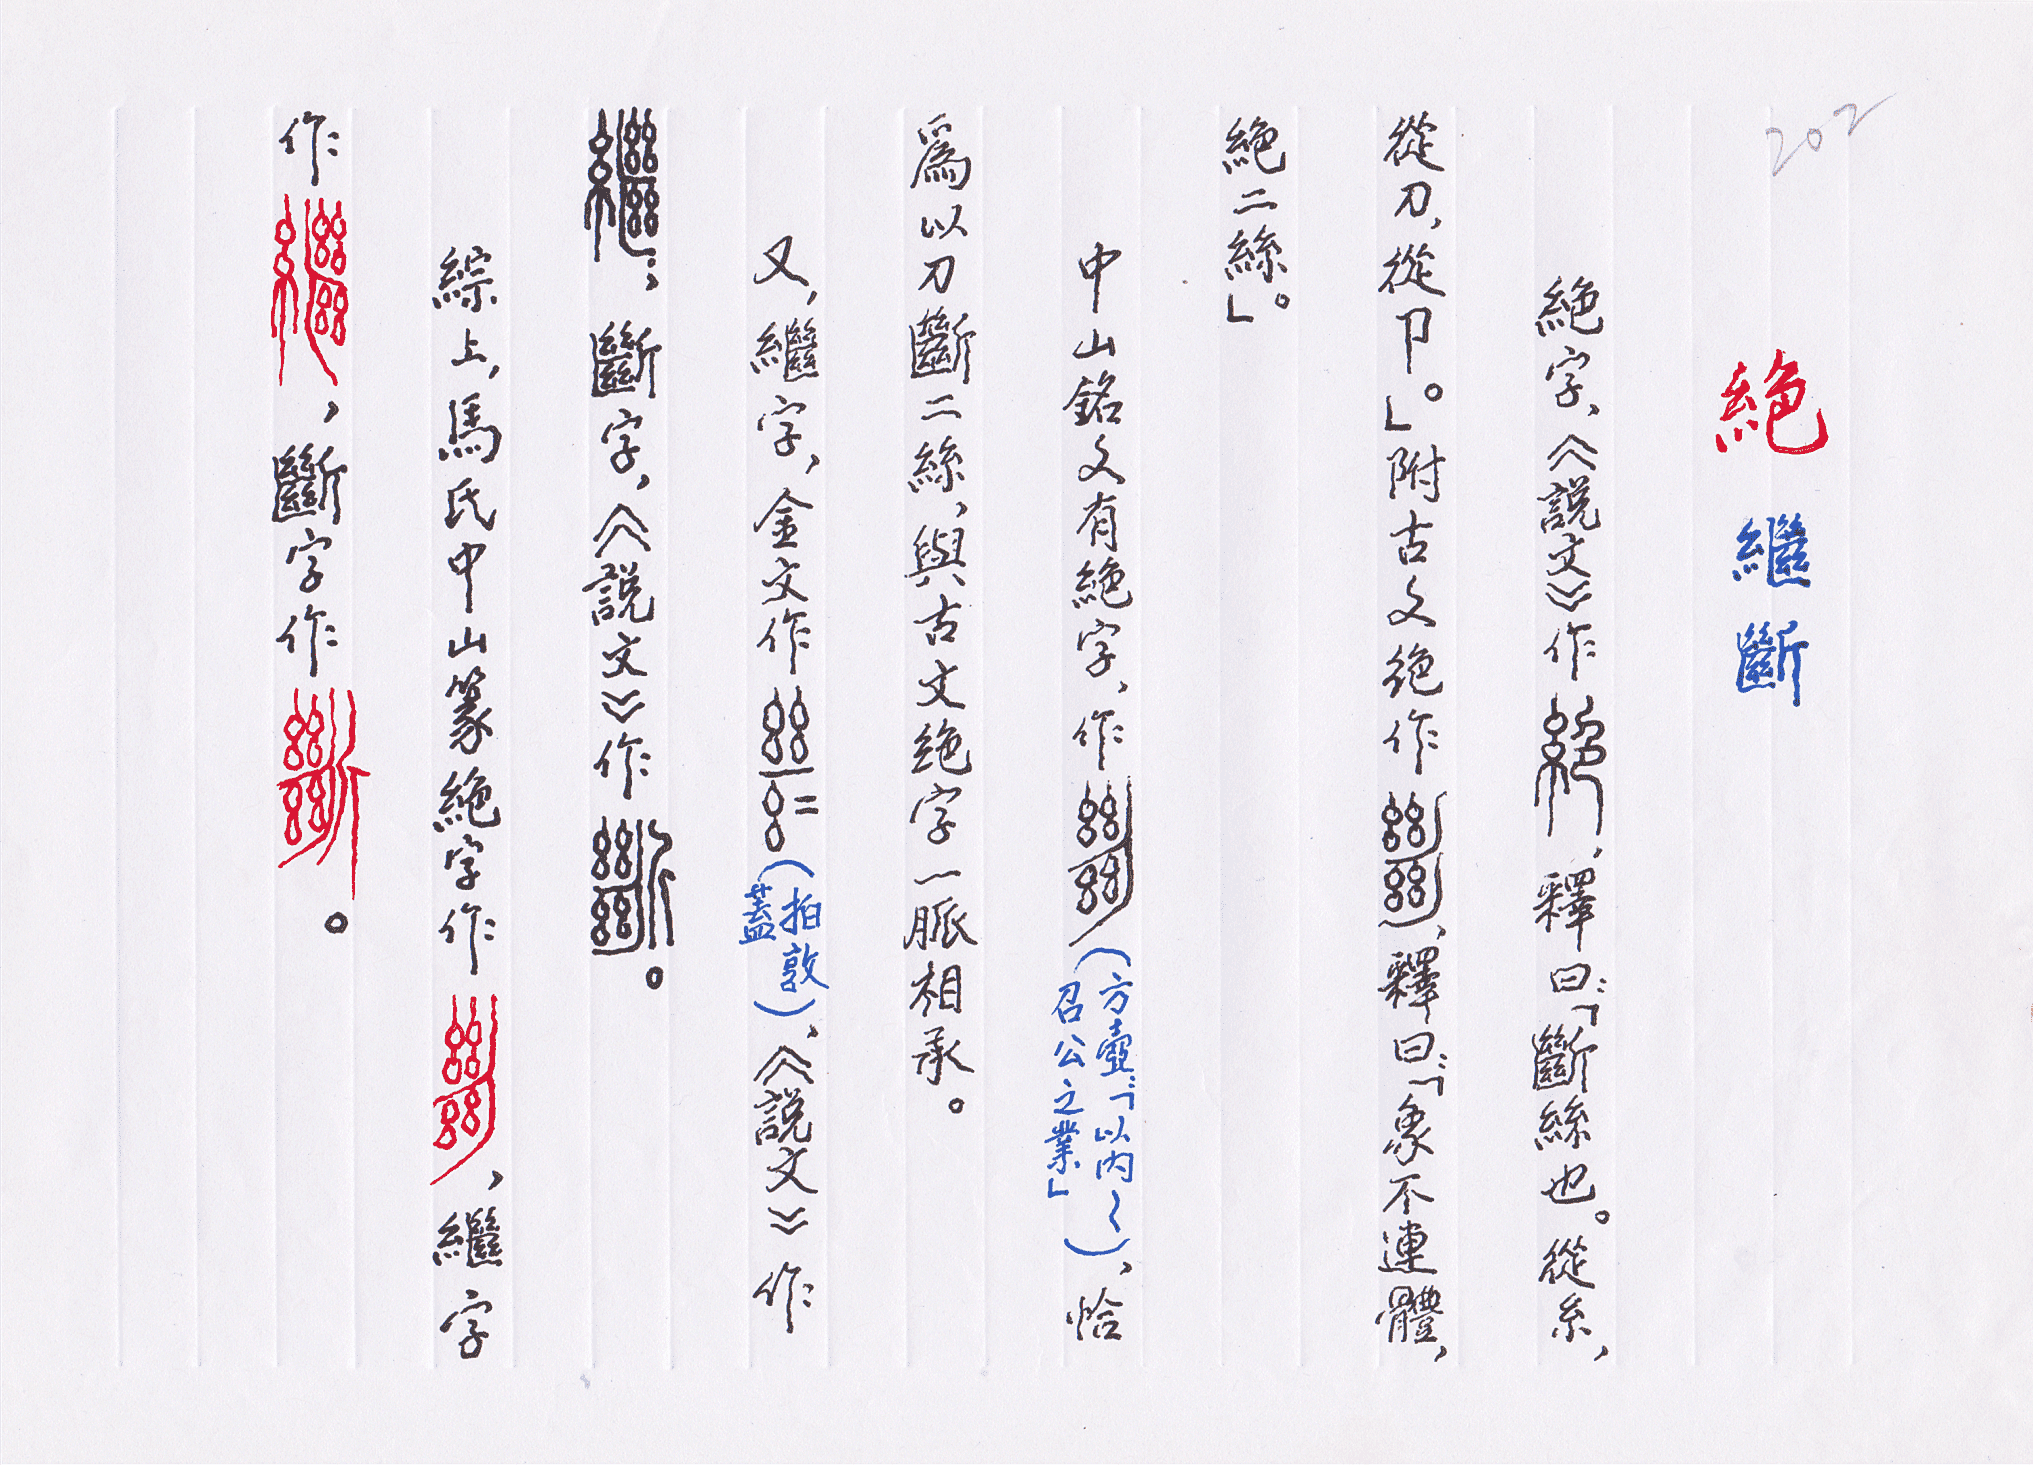 202
絕 繼斷
絕字，《說文》作，釋曰：「斷絲也。從糸，
從刀，從卩。」附古文絕作，釋曰：「象不連體，
絕二絲」。
中山銘文有絕字，作（方壺：「以內～召公之業」），恰
爲以刀斷二絲，與古文絕字一脈相承。
又，繼字，金文作（拍敦蓋），《說文》作
；斷字，《說文》作。
綜上，馬氏中山篆絕字作，繼字
作，斷字作。